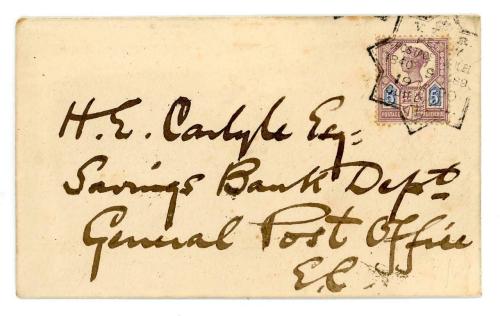 H. E. Carlyle Esq.
Savings Bank Dept
General Post Office
E.C